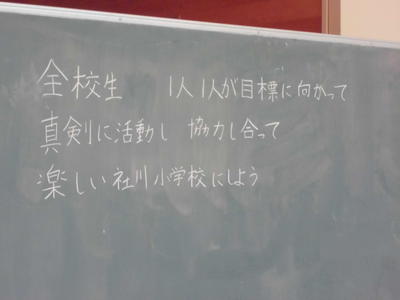 全校生 1人1人が目標に向かって
真剣に活動し 協力し合って
楽しい社川小学校にしよう